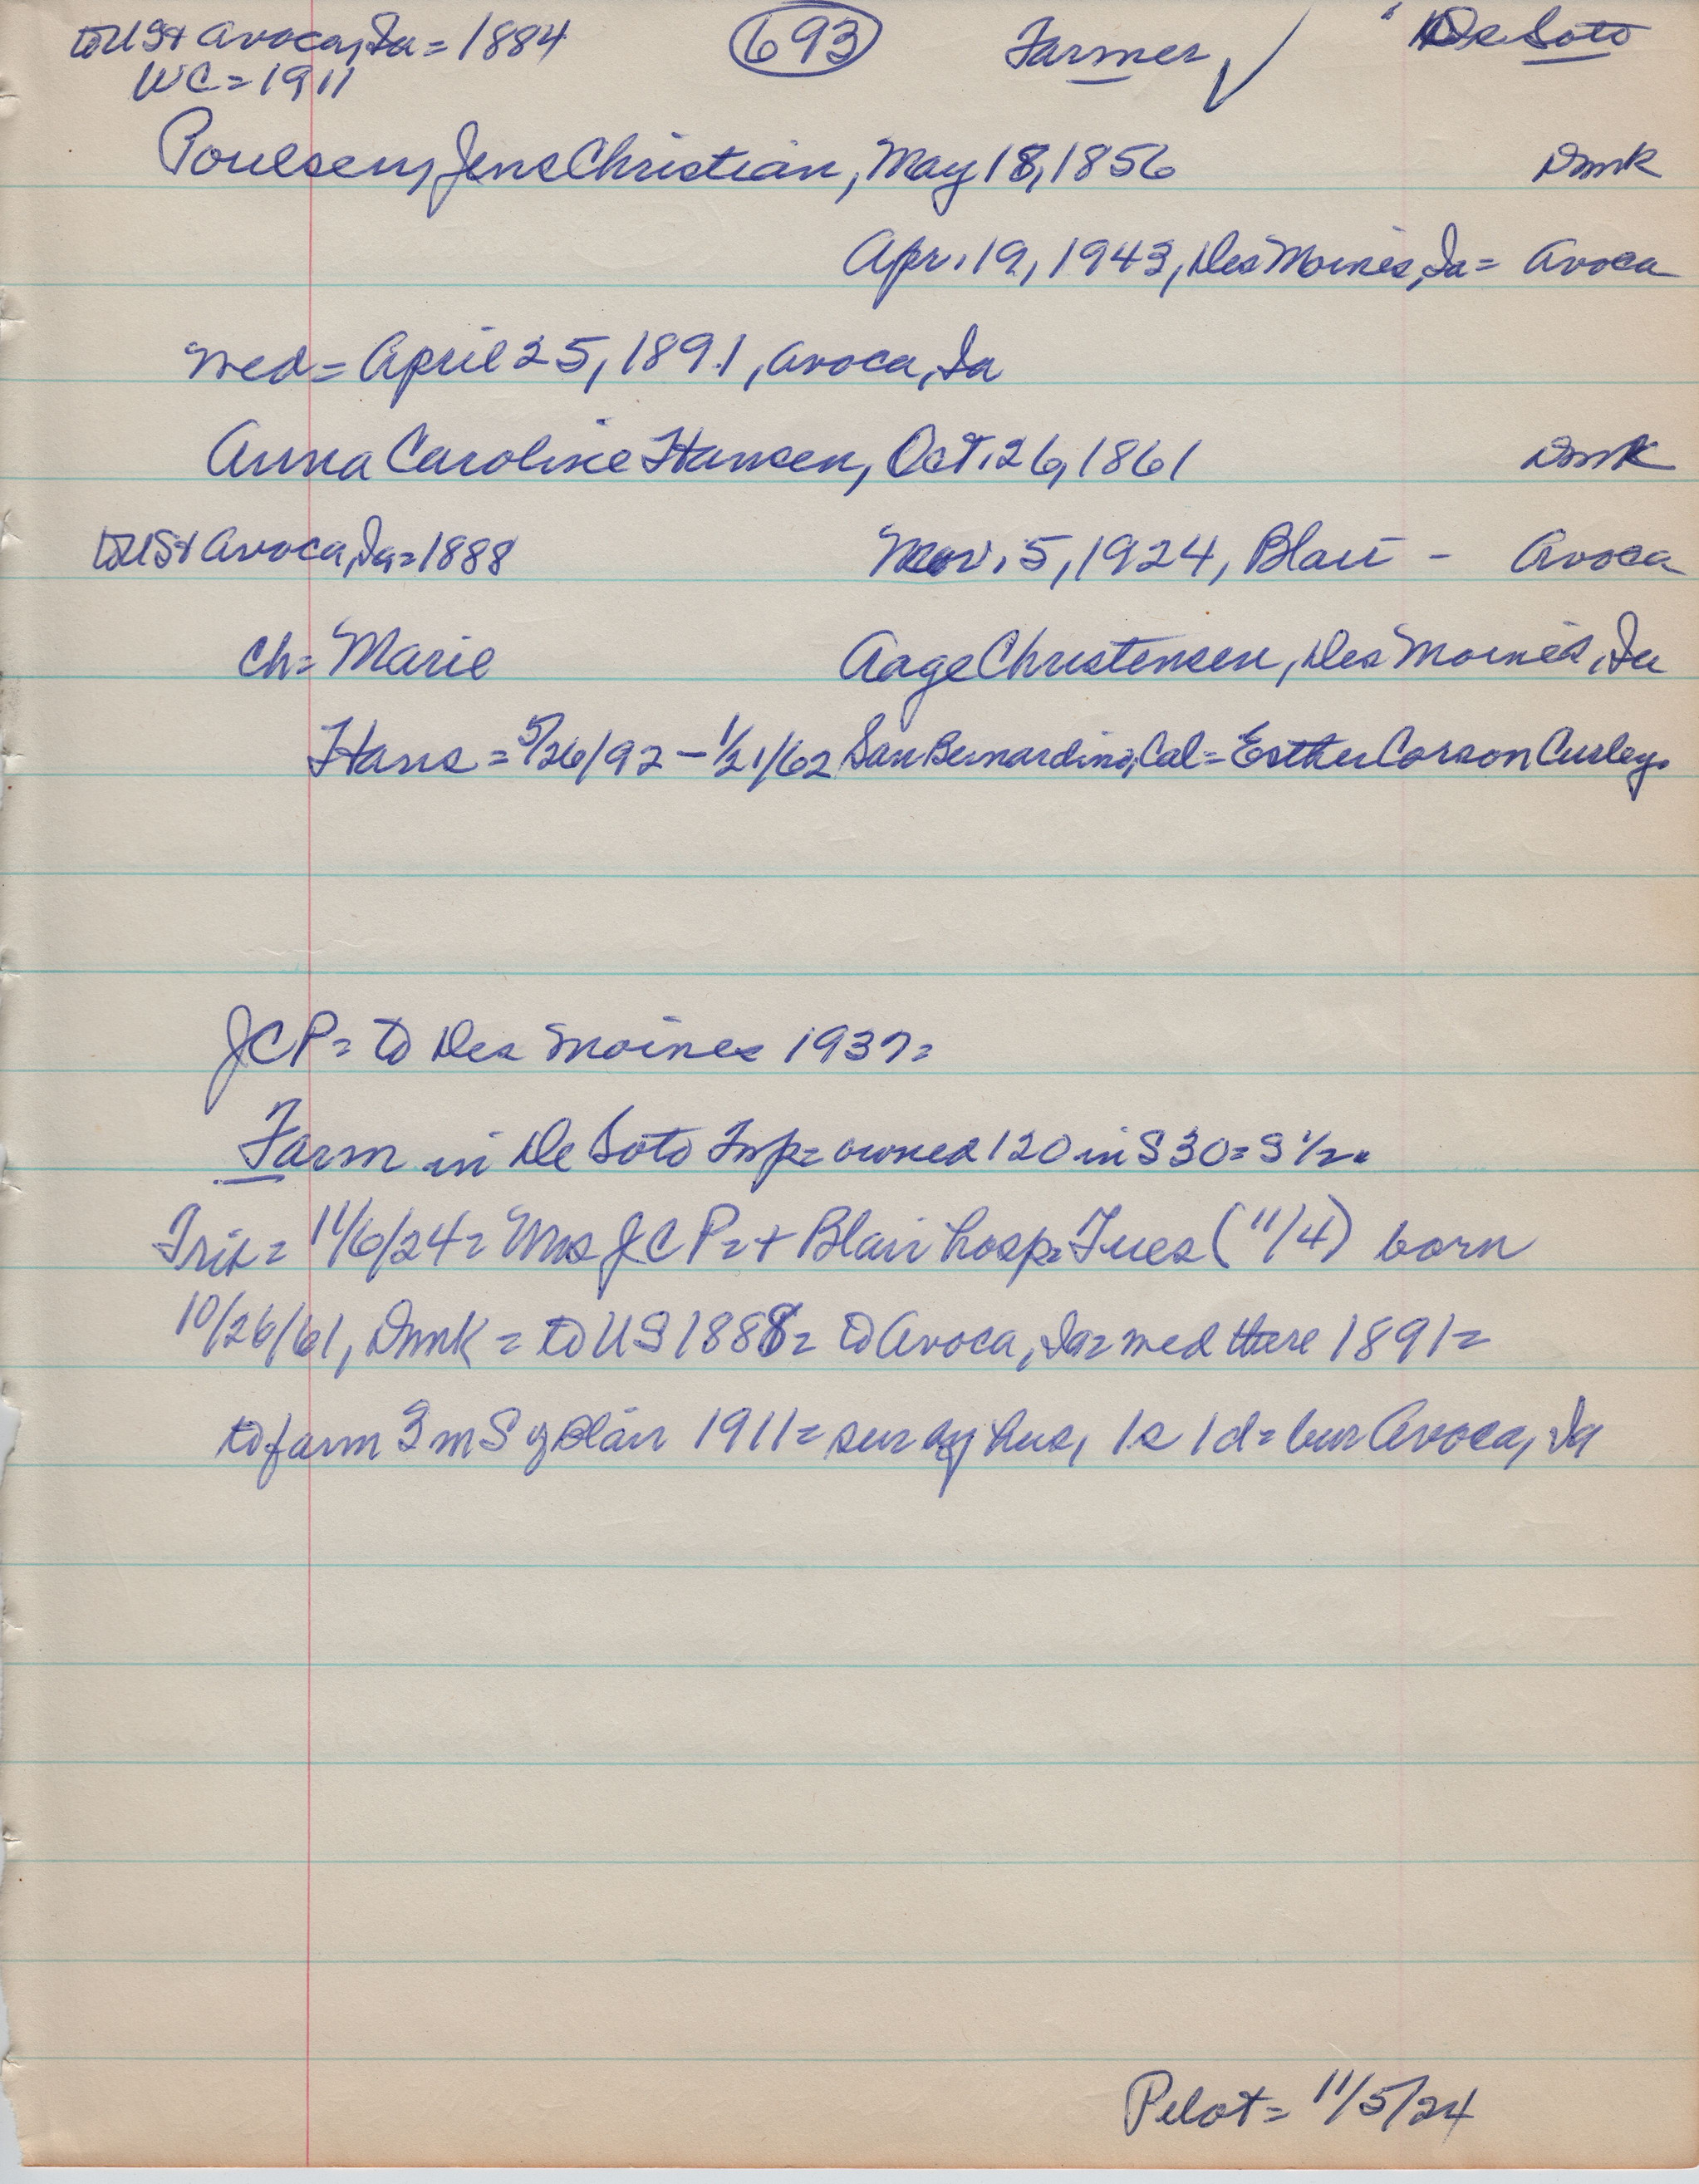 to US + Avoca, Ia = 1884 (693) Farmer ✓ De Soto
WC = 1911
Poulsen, Jens Christian, May 18, 1856 Dmk
Apr. 19, 1943, Des Moines, Ia = Avoca
med = April 25, 1891, Avoca, Ia
Anna Caroline Hansen, Oct. 26, 1861 Dmk
to US + Avoca, Ia = 1888 Nov. 5, 1924, Blair - Avoca
Ch = Marie Aage Christensen, Des Moines, Ia
Hans = 5/26/92 - 1/21/62 San Bernardino, Cal = Esther Carson Curley.
JCP = to Des Moines 1937 =
Farm in De Soto Twp = owned 120 in S 30 = S 1/2.
Trib = 11/6/24 = Mrs JCP = + Blair hosp = Tues (11/4) born
10/26/61, Dmk = to US 1888 = to Avoca, Ia = med there 1891 =
to farm 3 m S of Blair 1911 = sur by hus, 1 s 1 d = bur Avoca, Ia
Pilot = 11/5/24